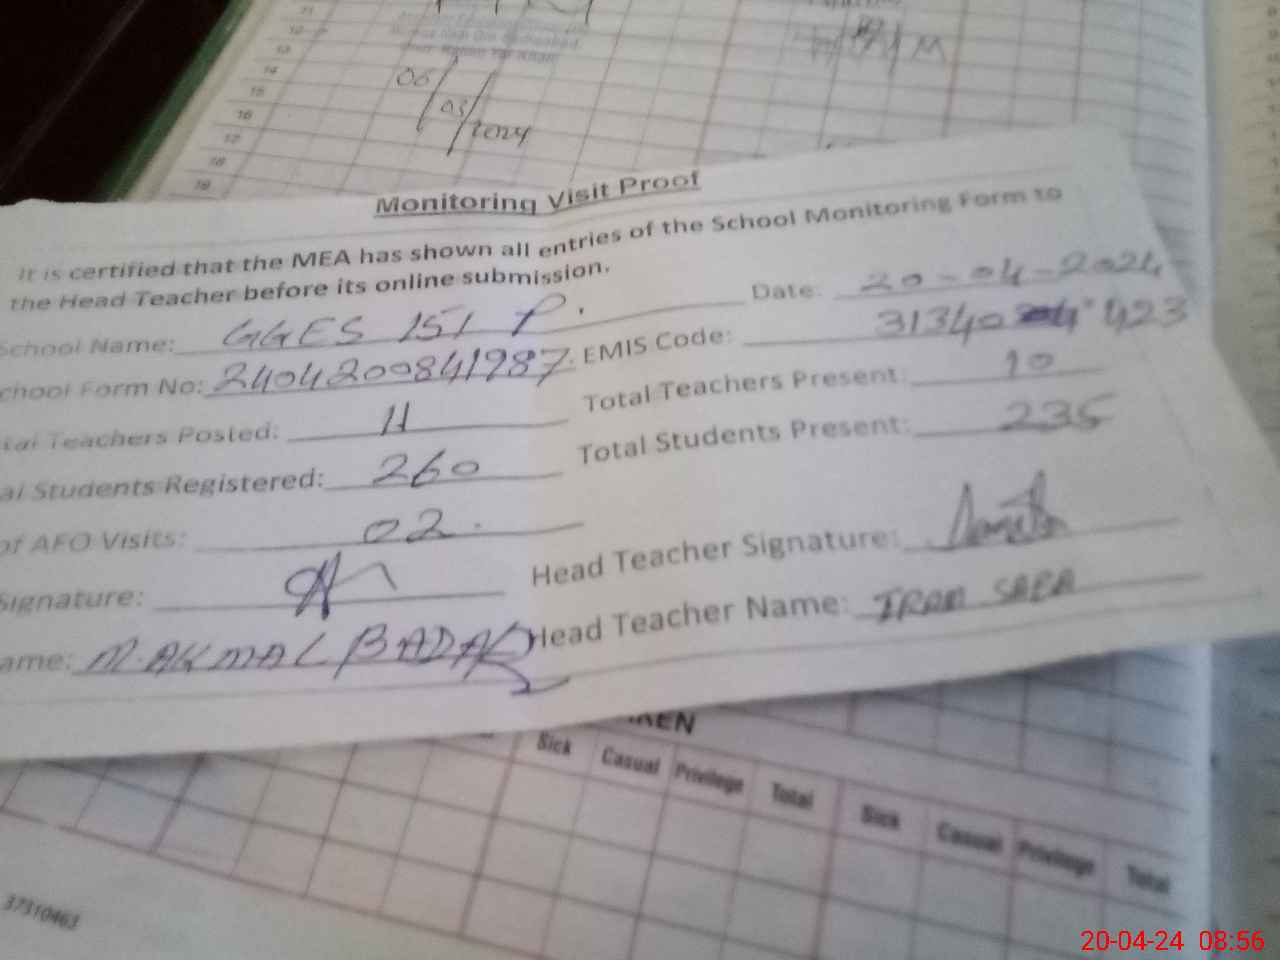 11
12
13
14
15
16
17
18
19
06/03/2024
Monitoring Visit Proof
It is certified that the MEA has shown all entries of the School Monitoring Form to
the Head Teacher before its online submission.
Date: 20-04-2024
School Name: GGES 151 P.
EMIS Code: 31340 423
chool Form No: 2404200841987
Total Teachers Present: 10
tal Teachers Posted: 11
Total Students Present: 235
al Students Registered: 260
of AEO Visits: 02.
Head Teacher Signature:
Signature:
Head Teacher Name: IRAM SABA
ame: M. AKMAL
Sick Casual Privilege Total Sick Casual Privilege Total
37310463
20-04-24 08:56